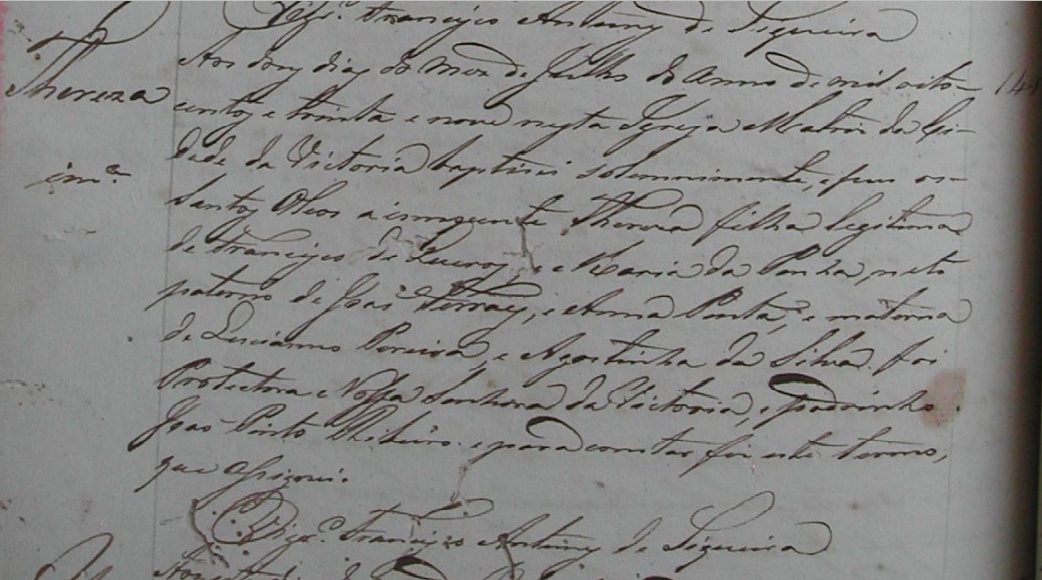 Vigr.º Francisco Antunes de Siqueira
Thereza
Aos dous dias do mez de Julho do Anno de mil oito-
centos e trinta e nove nesta Igreja Matriz da Ci-
dade da Victoria baptisei solemnimente, e puz os
inn.e
Santos Oleos a innocente Thereza filha legitima
de Francisco de , e Maria da Penha, neta
paterna de Joaõ Ferraz, e Anna Pinta, e materna
de Lucianno Pereira, e Agostinha da Silva. foi
Protectora e Nossa Senhora da Victoria, e padrinho
Joaõ Pinto Ribeiro. e para constar fiz este termo,
que assignei.
Vigr.º Francisco Antunes de Siqueira